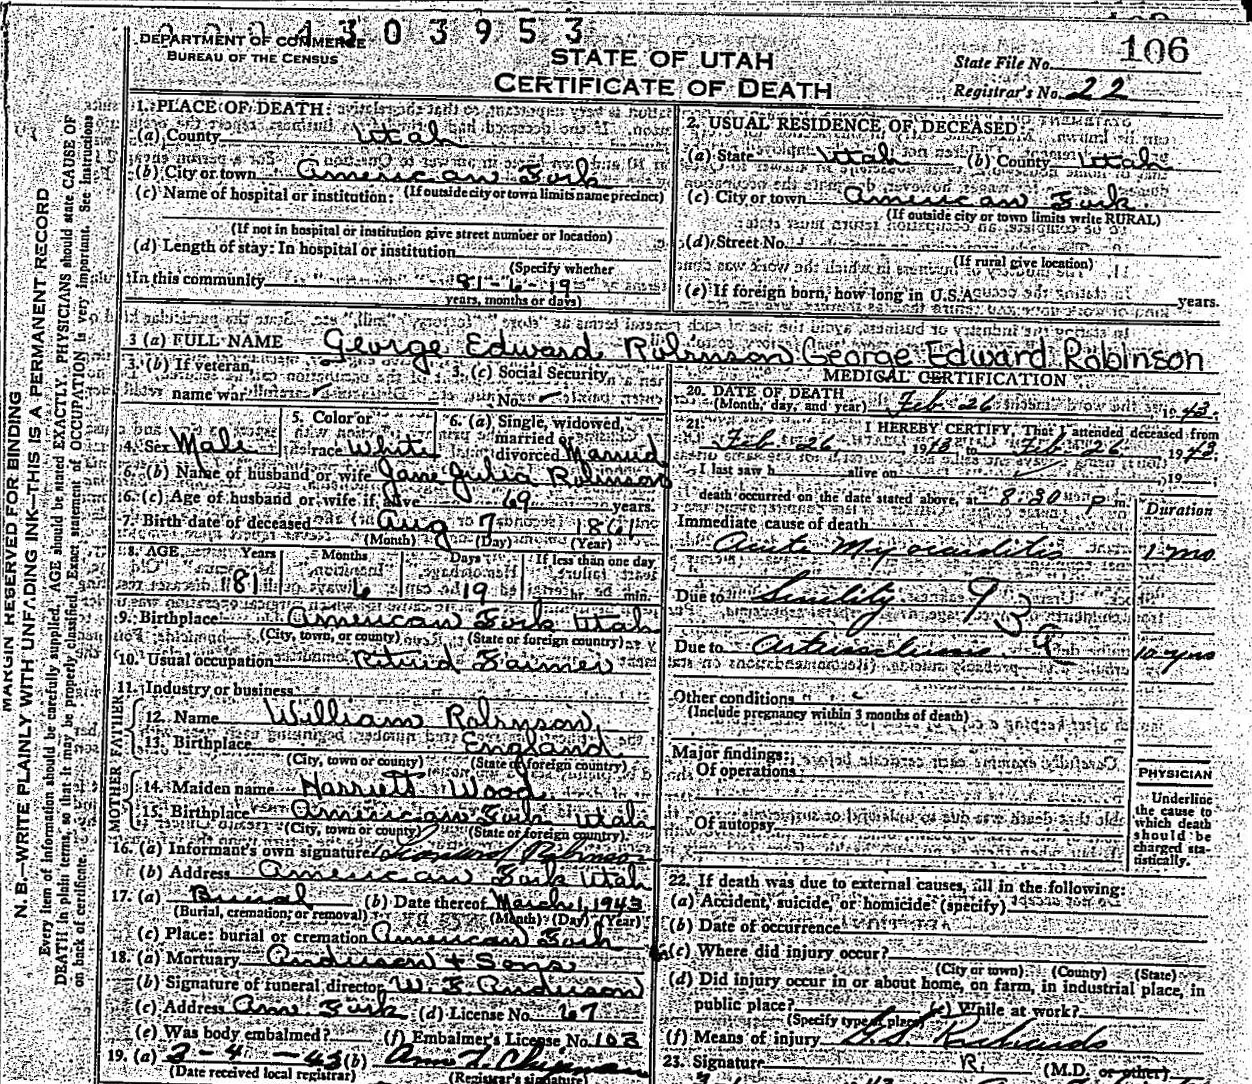 2 2 0 4 3 0 3 9 5 3
DEPARTMENT OF COMMERCE
BUREAU OF THE CENSUS
STATE OF UTAH
CERTIFICATE OF DEATH
State File No. 106
Registrar's No. 22
MARGIN RESERVED FOR BINDING
N. B.—WRITE PLAINLY WITH UNFADING INK—THIS IS A PERMANENT RECORD
Every item of information should be carefully supplied. AGE should be stated EXACTLY. PHYSICIANS should state CAUSE OF
DEATH in plain terms, so that it may be properly classified. Exact statement of OCCUPATION is very important. See instructions
on back of certificate.
1. PLACE OF DEATH:
(a) County Utah
(b) City or town American Fork
(If outside city or town limits name precinct)
(c) Name of hospital or institution:
(If not in hospital or institution give street number or location)
(d) Length of stay: In hospital or institution
(Specify whether
In this community 81-6-19
years, months or days)
2. USUAL RESIDENCE OF DECEASED:
(a) State Utah (b) County Utah
(c) City or town American Fork
(If outside city or town limits write RURAL)
(d) Street No.
(If rural give location)
(e) If foreign born, how long in U.S.A. years.
3 (a) FULL NAME George Edward Robinson George Edward Robinson
3. (b) If veteran, name war
3. (c) Social Security No.
4. Sex Male
5. Color or race White
6. (a) Single, widowed, married divorced Married
6. (b) Name of husband or wife Jane Julia Robinson
6. (c) Age of husband or wife if alive 69 years.
7. Birth date of deceased Aug 7 1861
(Month) (Day) (Year)
8. AGE Years Months Days If less than one day
81 6 19 hr. min.
9. Birthplace American Fork Utah
(City, town, or county) (State or foreign country)
10. Usual occupation Retired Farmer
11. Industry or business
FATHER
12. Name William Robinson
13. Birthplace England
(City, town or county) (State or foreign country)
MOTHER
14. Maiden name Harriett Wood
15. Birthplace American Fork Utah
(City, town or county) (State or foreign country)
16. (a) Informant's own signature Robinson
(b) Address American Fork Utah
17. (a) Burial (b) Date thereof March 1, 1943
(Burial, cremation, or removal) (Month) (Day) (Year)
(c) Place: burial or cremation American Fork
18. (a) Mortuary Anderson + Sons
(b) Signature of funeral director W. E. Anderson
(c) Address Am. Fork (d) License No. 67
(e) Was body embalmed? (f) Embalmer's License No. 103
19. (a) 3-4-43 (b) Chipman
(Date received local registrar) (Registrar's signature)
MEDICAL CERTIFICATION
20. DATE OF DEATH
(Month, day, and year) Feb. 26 1943.
21. I HEREBY CERTIFY, That I attended deceased from
Feb 26, 1943 to Feb 26 1943.
I last saw h alive on , 19
death occurred on the date stated above, at 8:30 p m.
Duration
Immediate cause of death
Acute Myocarditis 1 mo
Due to Senility 93
Due to Arteriosclerosis 10 yrs
Other conditions
(Include pregnancy within 3 months of death)
Major findings:
Of operations
Of autopsy
PHYSICIAN
Underline
the cause to
which death
should be
charged sta-
tistically.
22. If death was due to external causes, fill in the following:
(a) Accident, suicide, or homicide (specify)
(b) Date of occurrence
(c) Where did injury occur?
(City or town) (County) (State)
(d) Did injury occur in or about home, on farm, in industrial place, in
public place? (e) While at work?
(Specify type of place)
(f) Means of injury
23. Signature (M.D. or other)